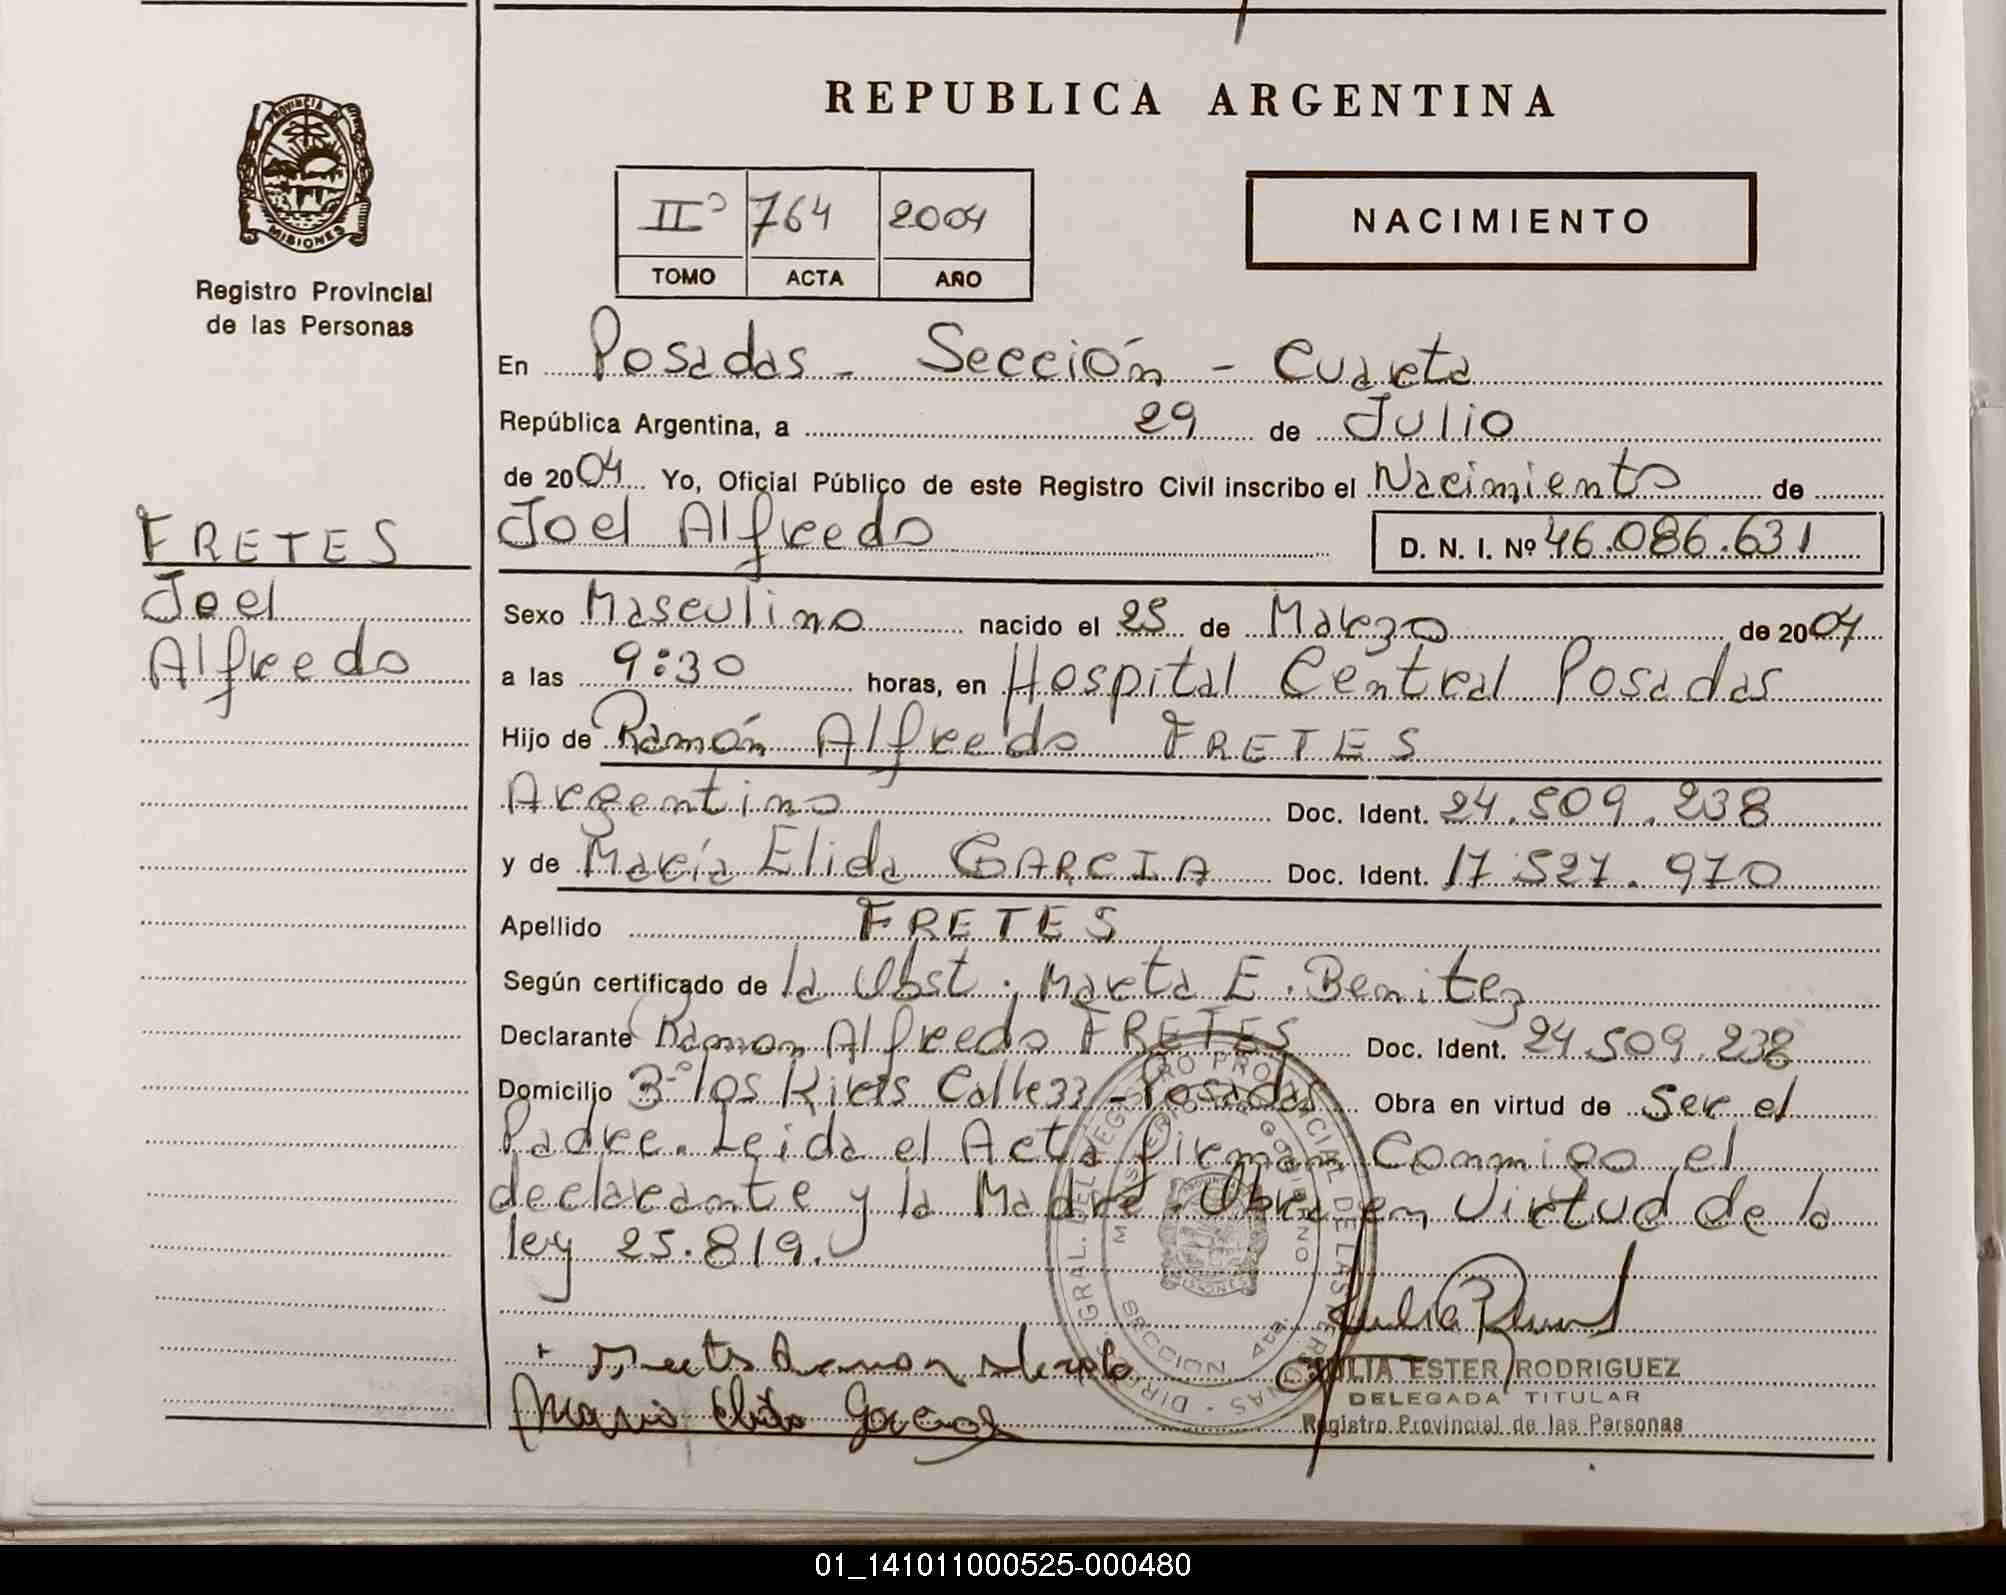 REPUBLICA ARGENTINA
PROVINCIA DE
MISIONES
Registro Provincial
de las Personas
IIº 764 2004
TOMO ACTA AÑO
NACIMIENTO
En Posadas - Sección - Cuarta
República Argentina, a 29 de Julio
de 2004 Yo, Oficial Público de este Registro Civil inscribo el Nacimiento de
Joel Alfredo D. N. I. Nº 46.086.631
FRETES
Joel
Alfredo
Sexo Masculino nacido el 25 de Marzo de 2004
a las 9:30 horas, en Hospital Central Posadas
Hijo de Ramón Alfredo FRETES
Argentino Doc. Ident. 24.509.238
y de María Elida GARCIA Doc. Ident. 17.527.970
Apellido FRETES
Según certificado de la Obst. Marta E. Benitez
Declarante Ramon Alfredo FRETES Doc. Ident. 24.509.238
Domicilio los Calle 33 - Posadas Obra en virtud de Ser el
Padre. Leida el Acta firman Conmigo el
declarante y la Madre. Obra en Virtud de la
ley 25.819.
DIREC. GRAL. DEL REGISTRO PROVINCIAL DE LAS PERSONAS
MINISTERIO DE GOBIERNO
MISIONES
SECCION 4ta.
Maria Elida Garcia
JULIA ESTER RODRIGUEZ
DELEGADA TITULAR
Registro Provincial de las Personas
01_141011000525-000480